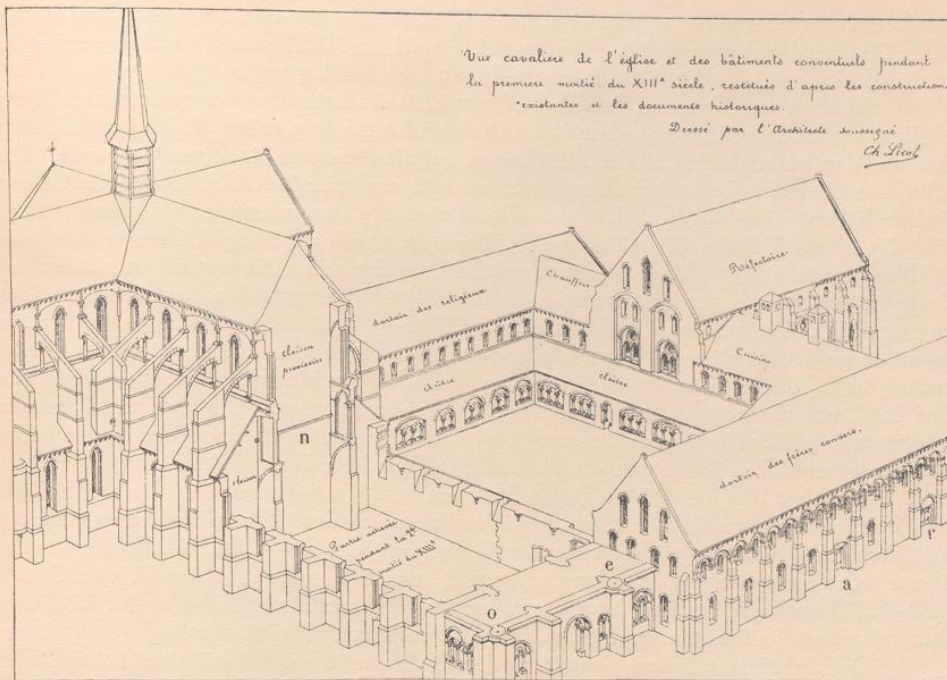 Vue cavalière de l'église et des bâtiments conventuels pendant
la première moitié du XIIIe siècle, restitués d'après les constructions
existantes et les documents historiques.
Dressé par l'Architecte soussigné
Ch Licot
Réfectoire
Chauffoir
dortoir des religieux
Cuisine
cloison
provisoire
cloître
cloître
n
dortoir des frères convers.
cloison
Partie achevée
pendant la 2e
moitié du XIIIe
r
e
a
o